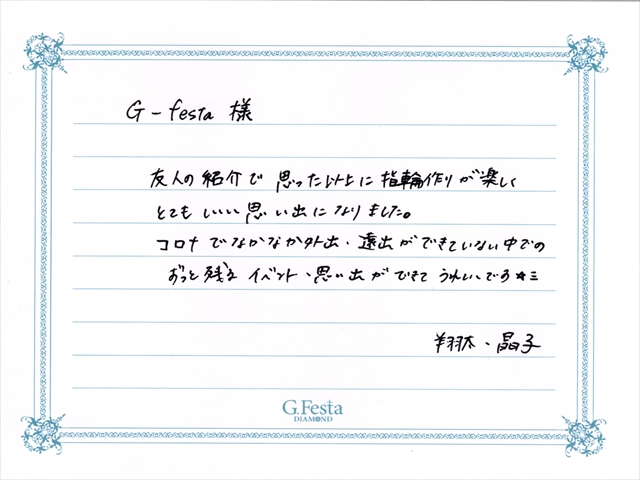 G-festa 様
友人の紹介で思った以上に指輪作りが楽しく
とてもいい思い出になりました。
コロナでなかなか外出・遠出ができていない中での
ずっと残るイベント・思い出ができてうれしいです☆彡
翔太・晶子
G.Festa
DIAMOND